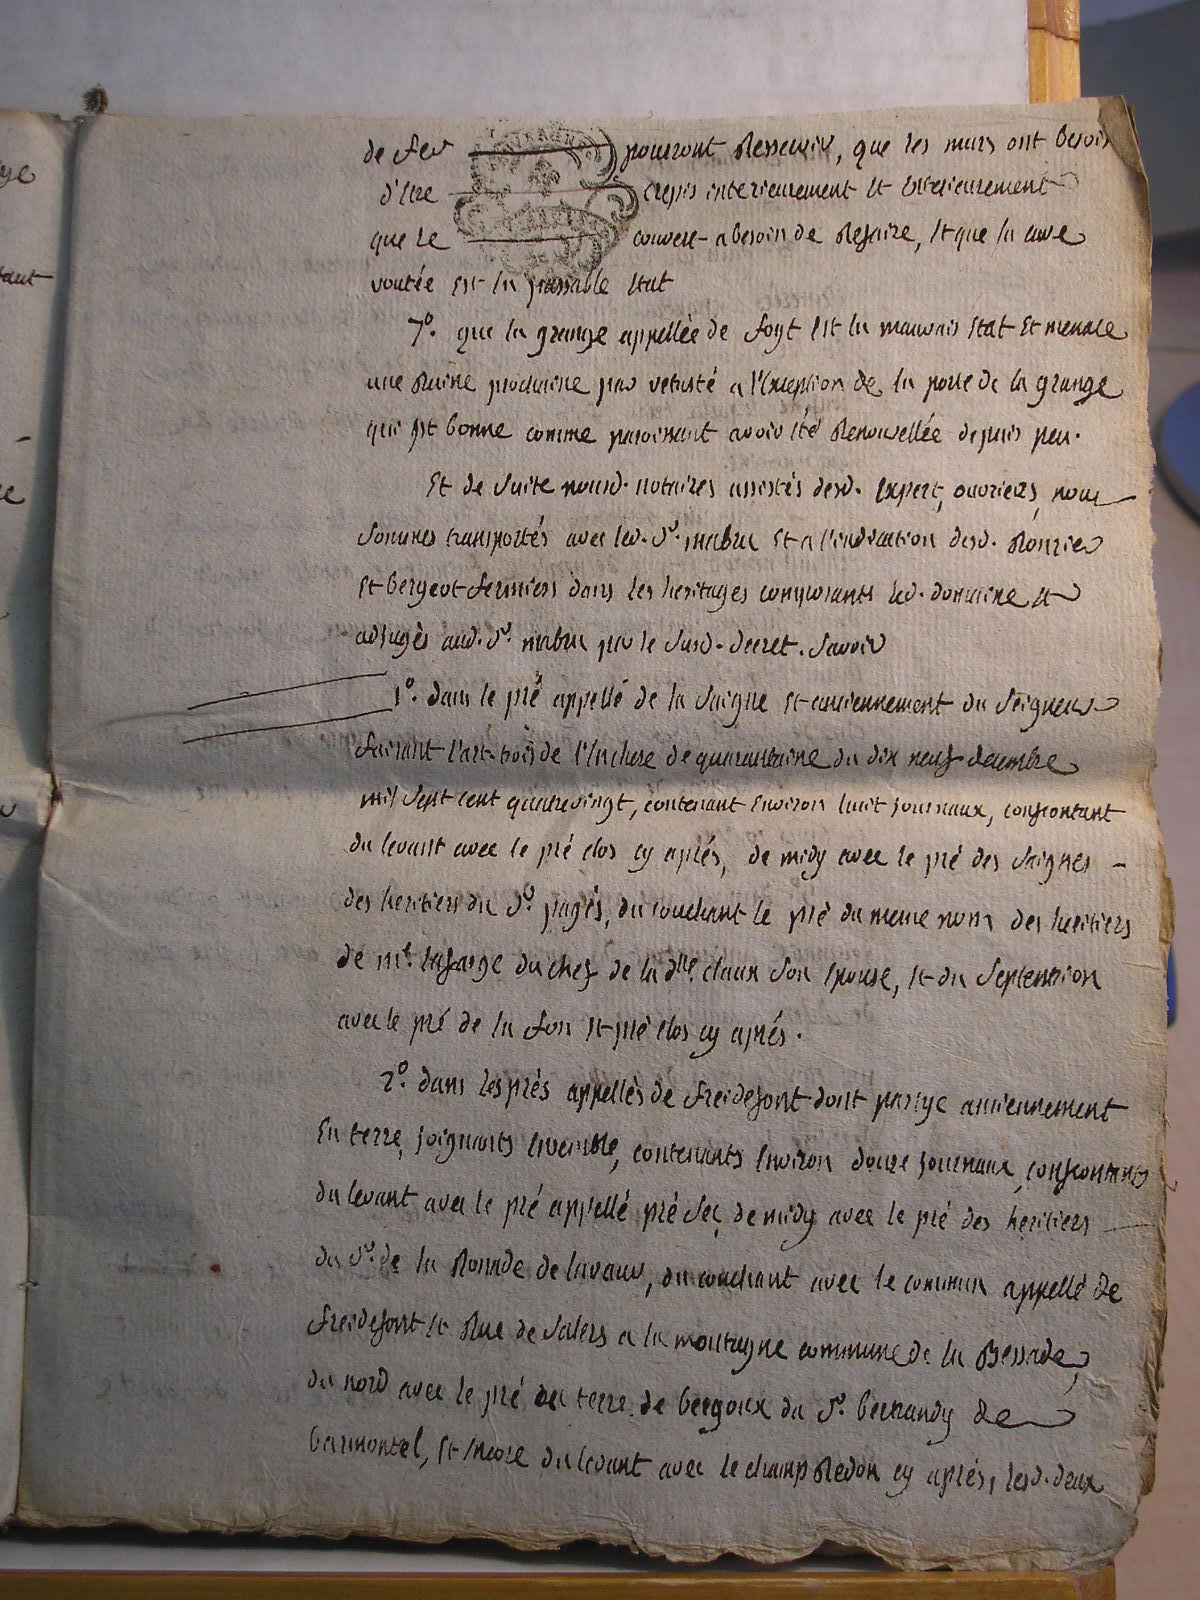 de fer pourront Resservir, que les murs ont besoin
d'Etre crepis interieurement Et Exterieurement
que le couvert a besoin de Refaire, Et que la cave
voutée Est En passable Etat
7º. que la grange appellée de foyt Est En mauvais Etat Et menace
une Ruine prochaine par vetusté a l'Exception de la porte de la grange
qui Est bonne comme paroissant avoir Eté Renouvellée depuis peu.
Et de suite nousd. notaires assistés desd. Expert, ouvriers, nous
sommes transportés avec led. Sr. mabru Et a l'indication desd. Rouries
Et bergeot fermiers dans les heritages composants led. domaine Et
adjugés aud. Sr. mabru par le susd. decret. Savoir
1º. dans le pré appellé de la Saigne Et anciennement du Seigneur
faisant l'art. trois de l'Enchere de quarantaine du dix neuf decembre
mil sept cent quatrevingt, contenant Environ huit journaux, confrontant
du levant avec le pré clos cy aprés, de midy avec le pré des Saignes
des heritiers du Sr. pagés, du couchant le pré du meme nom des heritiers
de me. lafarge du chef de la dlle. claux son Epouse, Et du Septentrion
avec le pré de la fon Et pré clos cy aprés.
2º. dans les prés appellés de freidefont dont partye anciennement
En terre, joignants Ensemble, contenants Environ douze journaux, confrontants
du levant avec le pré appellé pré Sec, de midy avec le pré des heritiers
du Sr. de la Ronade de lavaur, du couchant avec le commun appellé de
freidefont Et Rue de Salers a la montagne commune de la Bessade,
du nord avec le pré terre de bergoux du Sr. bertrandy de
barmontel, Et Encore du levant avec le champ Redon cy aprés, lesd. deux